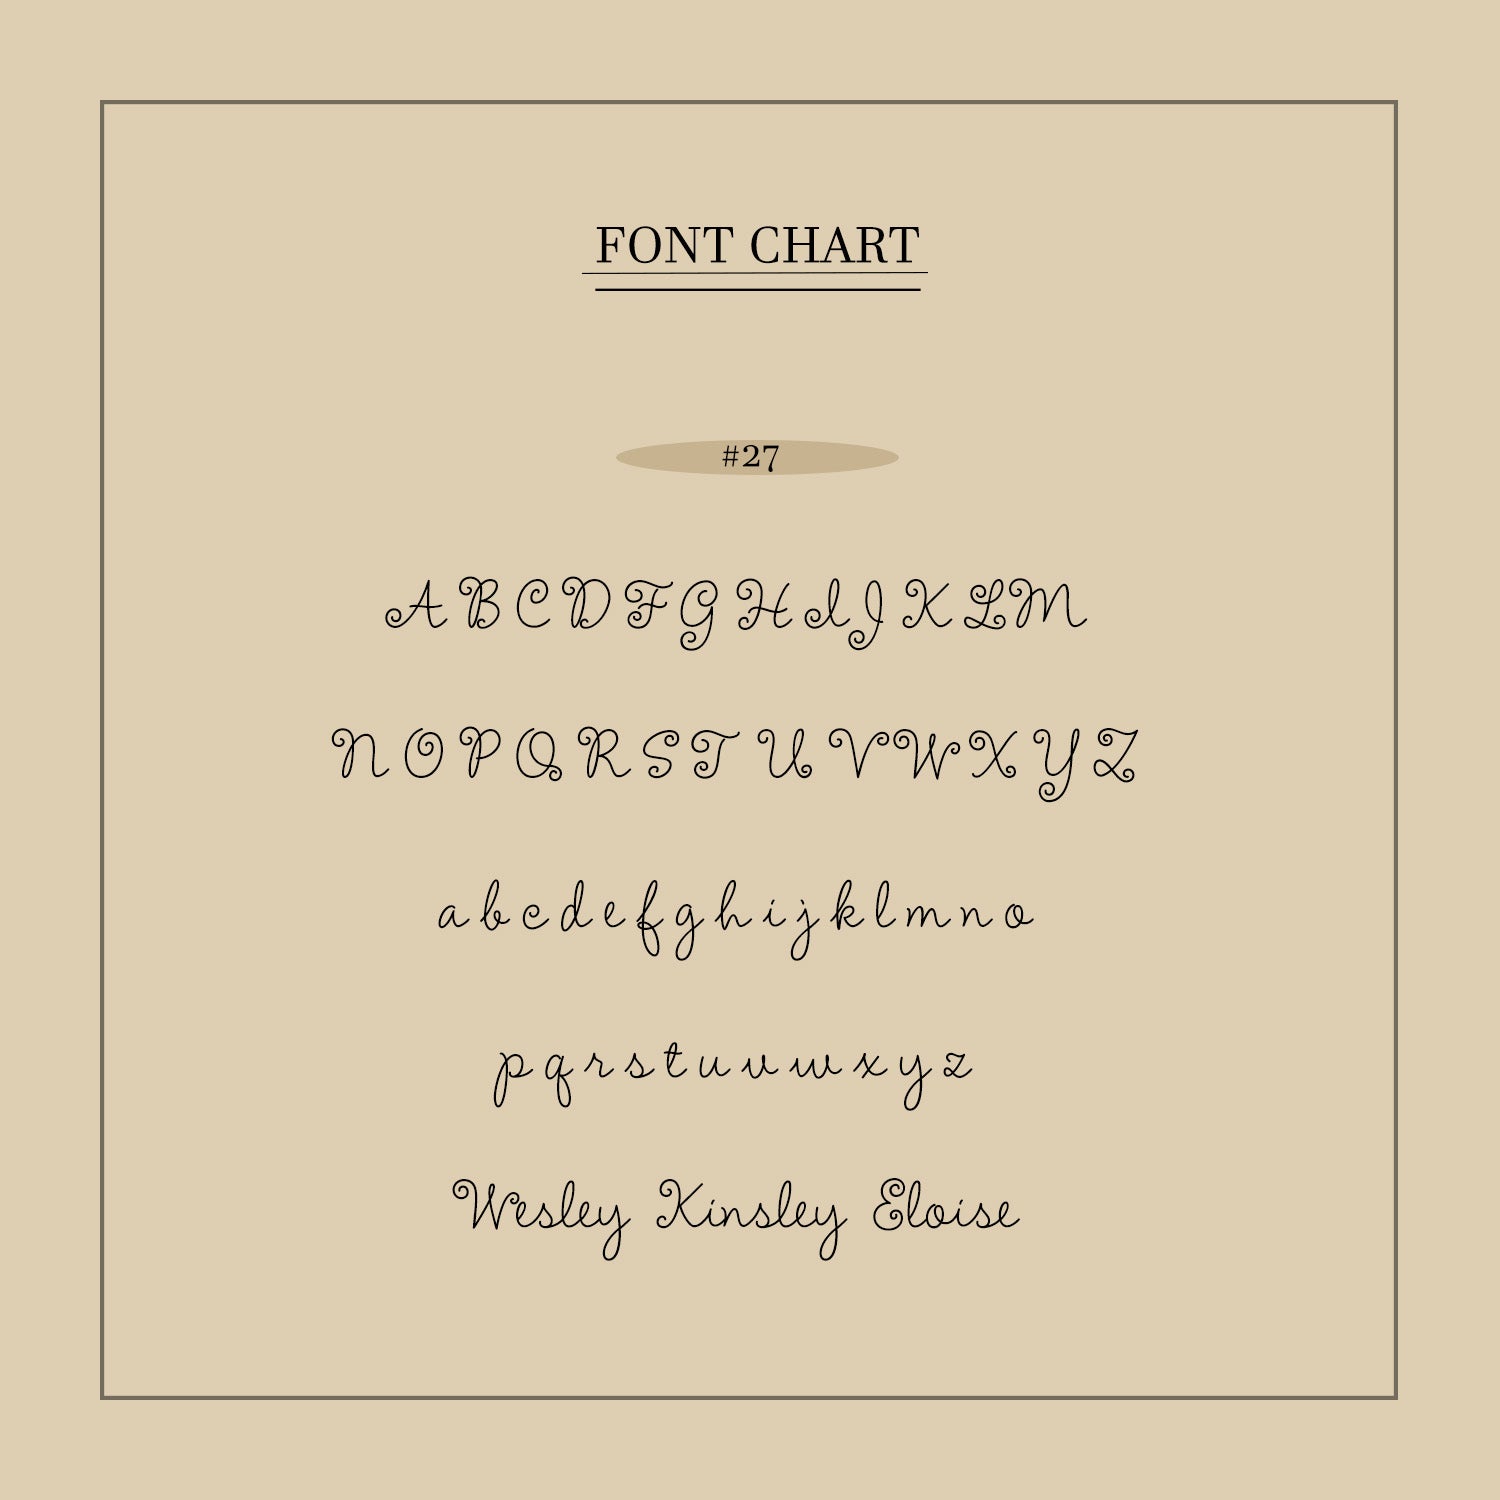 FONT CHART
#27
A B C D F G H I J K L M
N O P Q R S T U V W X Y Z
a b c d e f g h i j k l m n o
p q r s t u v w x y z
Wesley Kinsley Eloise